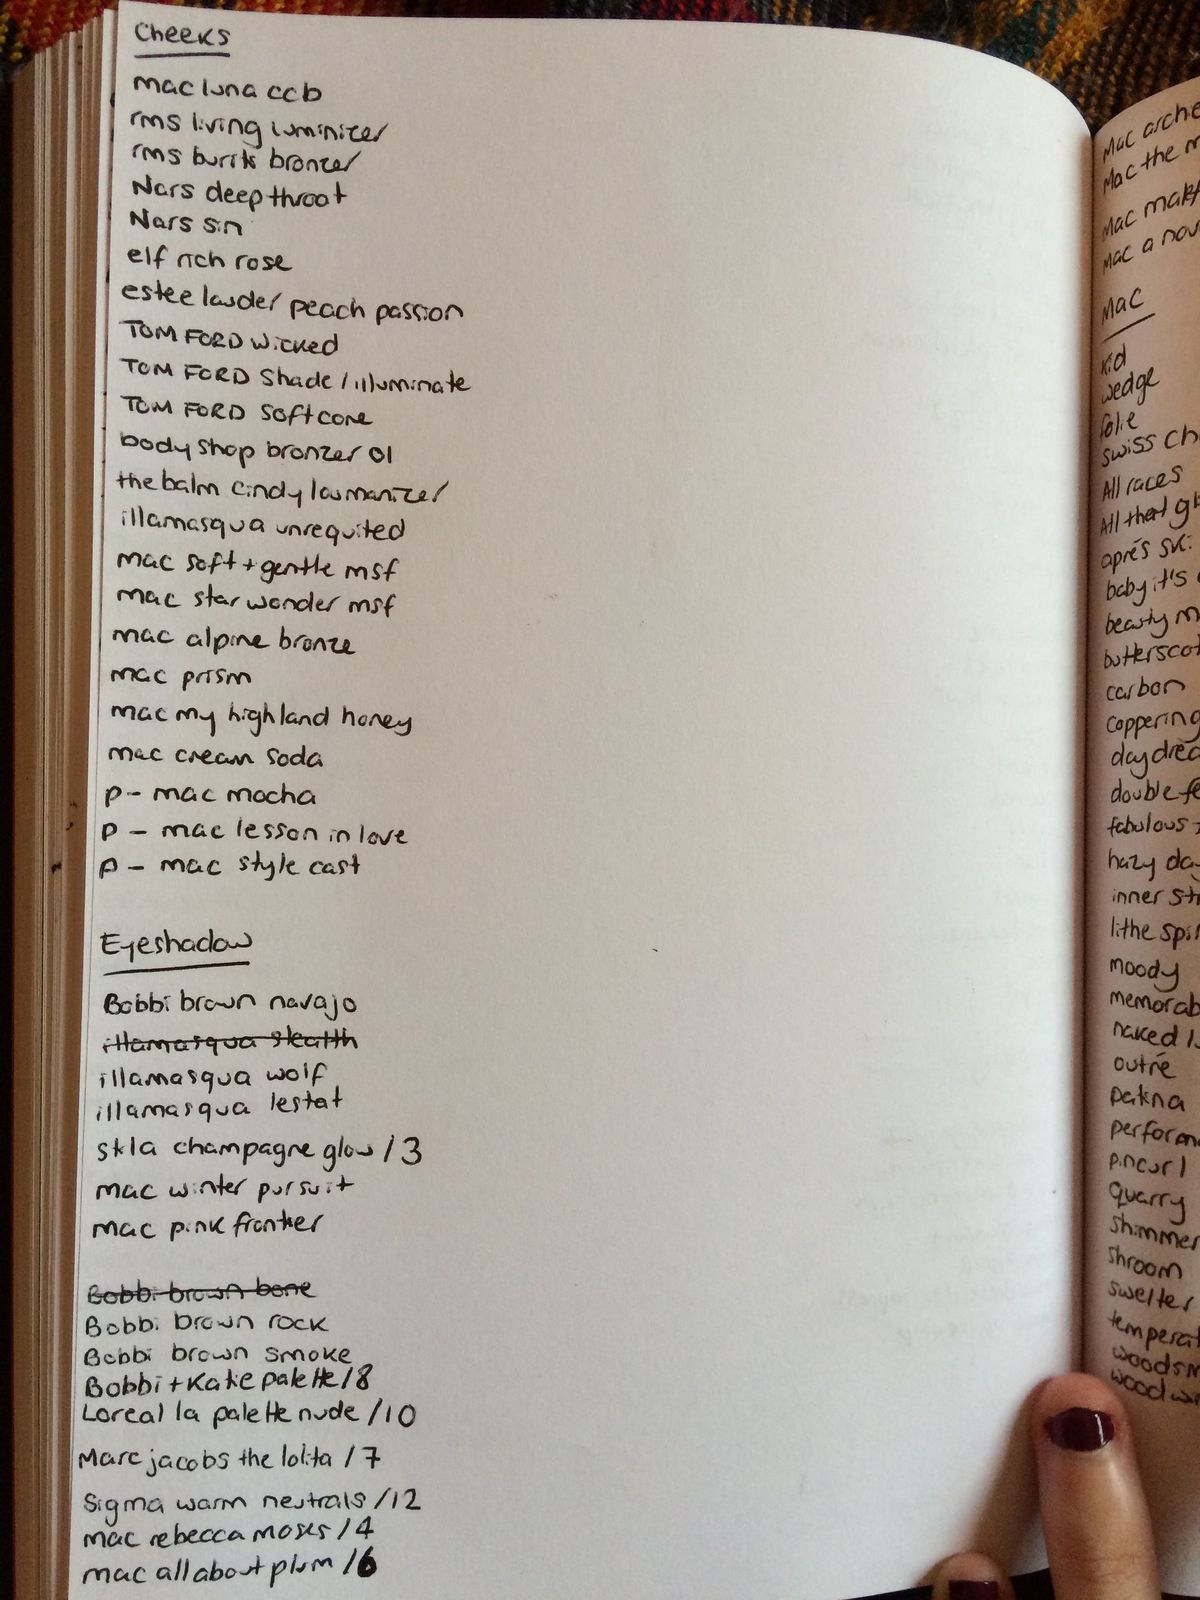 Cheeks
mac luna ccb
rms living luminizer
rms buriti bronzer
Nars deep throat
Nars sin
elf rich rose
estee lauder peach passion
TOM FORD wicked
TOM FORD Shade / illuminate
TOM FORD Softcore
body shop bronzer 01
the balm cindy loumanizer
illamasqua unrequited
mac soft + gentle msf
mac star wonder msf
mac alpine bronze
mac prism
mac my highland honey
mac cream soda
p - mac mocha
p - mac lesson in love
p - mac style cast
Eyeshadow
Bobbi brown navajo
illamasqua stealth
illamasqua wolf
illamasqua lestat
skla champagne glow / 3
mac winter pursuit
mac pink frontier
Bobbi brown bone
Bobbi brown rock
Bobbi brown smoke
Bobbi + Katie palette / 8
Loreal la palette nude / 10
Marc jacobs the lolita / 7
Sigma warm neutrals / 12
mac rebecca moses / 4
mac all about plum / 6
Mac arche
Mac the m
Mac
Mac a nov
Mac
kid
wedge
folie
swiss ch
All races
All that gl
aprés ski
baby it's
beauty m
butterscot
carbon
coppering
day drea
double fe
fabulous
hazy day
inner st
lithe spir
moody
memorab
naked l
outré
patina
performa
pincurl
quarry
shimmer
shroom
swelter
temperat
woodsm
wood wi